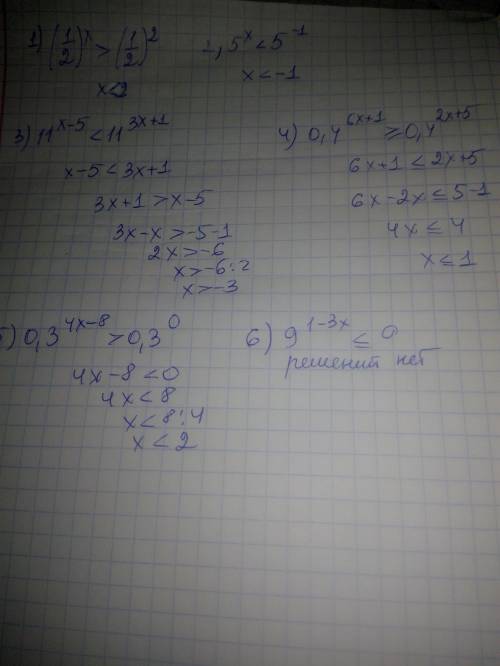 1) (1/2)^x > (1/2)^2
x<2
5^x < 5^-1
x<-1
3) 11^x-5 < 11^3x+1
x-5 < 3x+1
3x+1 > x-5
3x-x > -5-1
2x > -6
x > -6:2
x > -3
4) 0,4^6x+1 ≥ 0,4^2x+5
6x+1 ≤ 2x+5
6x-2x ≤ 5-1
4x ≤ 4
x ≤ 1
5) 0,3^4x-8 > 0,3^0
4x-8 < 0
4x < 8
x < 8:4
x < 2
6) 9^1-3x ≤ 0
решений нет